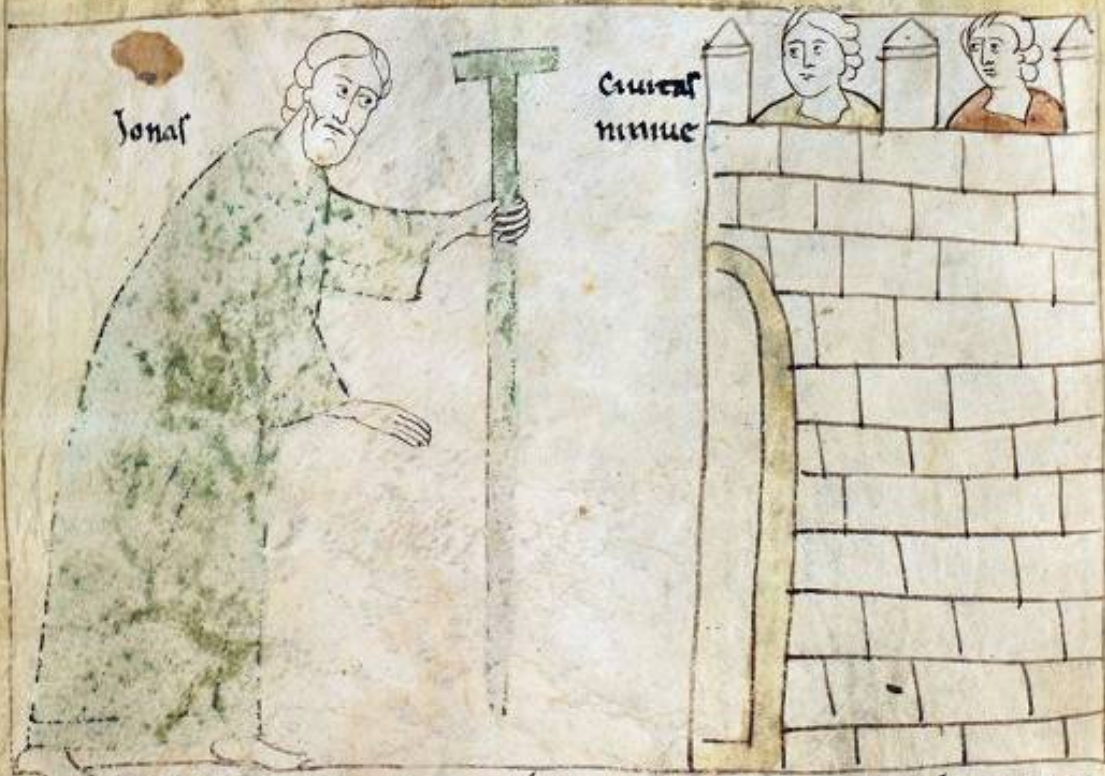 Jonas
Ciuitas
niniue